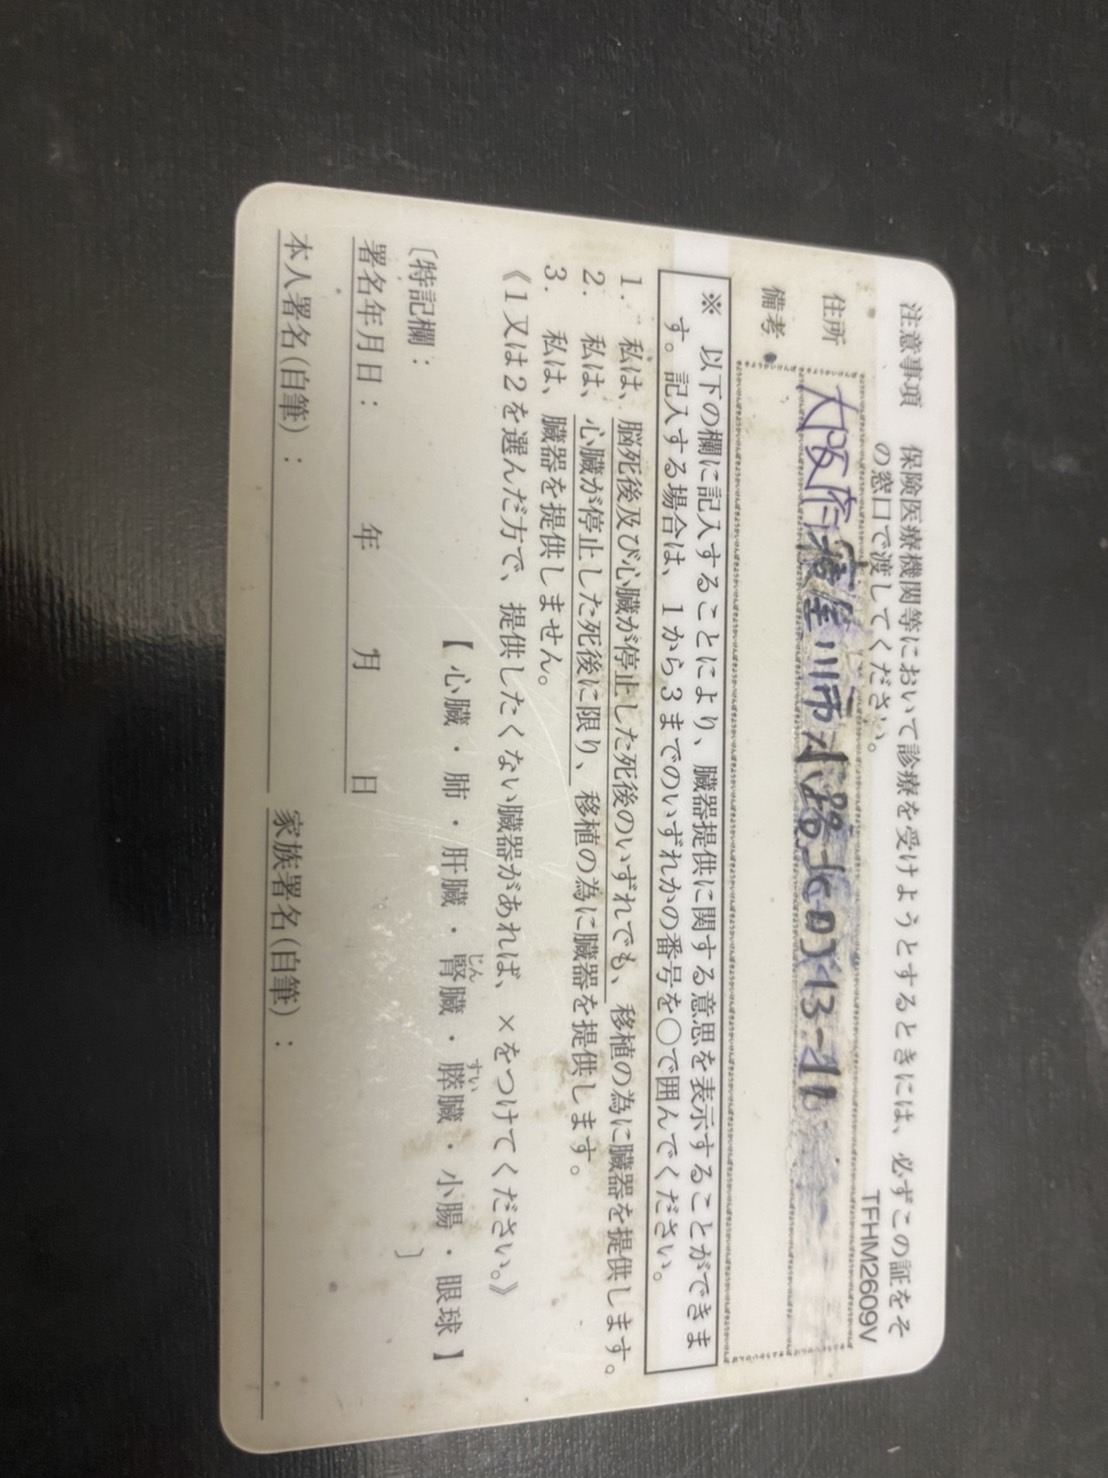 注意事項 保険医療機関等において診療を受けようとするときには、必ずこの証をそ
の窓口で渡してください。
TFHM2609V
住所 大阪府寝屋川市
備考
※ 以下の欄に記入することにより、臓器提供に関する意思を表示することができま
す。記入する場合は、1から3までのいずれかの番号を○で囲んでください。
1. 私は、脳死後及び心臓が停止した死後のいずれでも、移植の為に臓器を提供します。
2. 私は、心臓が停止した死後に限り、移植の為に臓器を提供します。
3. 私は、臓器を提供しません。
《1又は2を選んだ方で、提供したくない臓器があれば、×をつけてください。》
【 心臓・肺・肝臓・腎臓・膵臓・小腸・眼球 】
じん すい
〔特記欄： 〕
署名年月日： 年 月 日
本人署名(自筆)： 家族署名(自筆)：